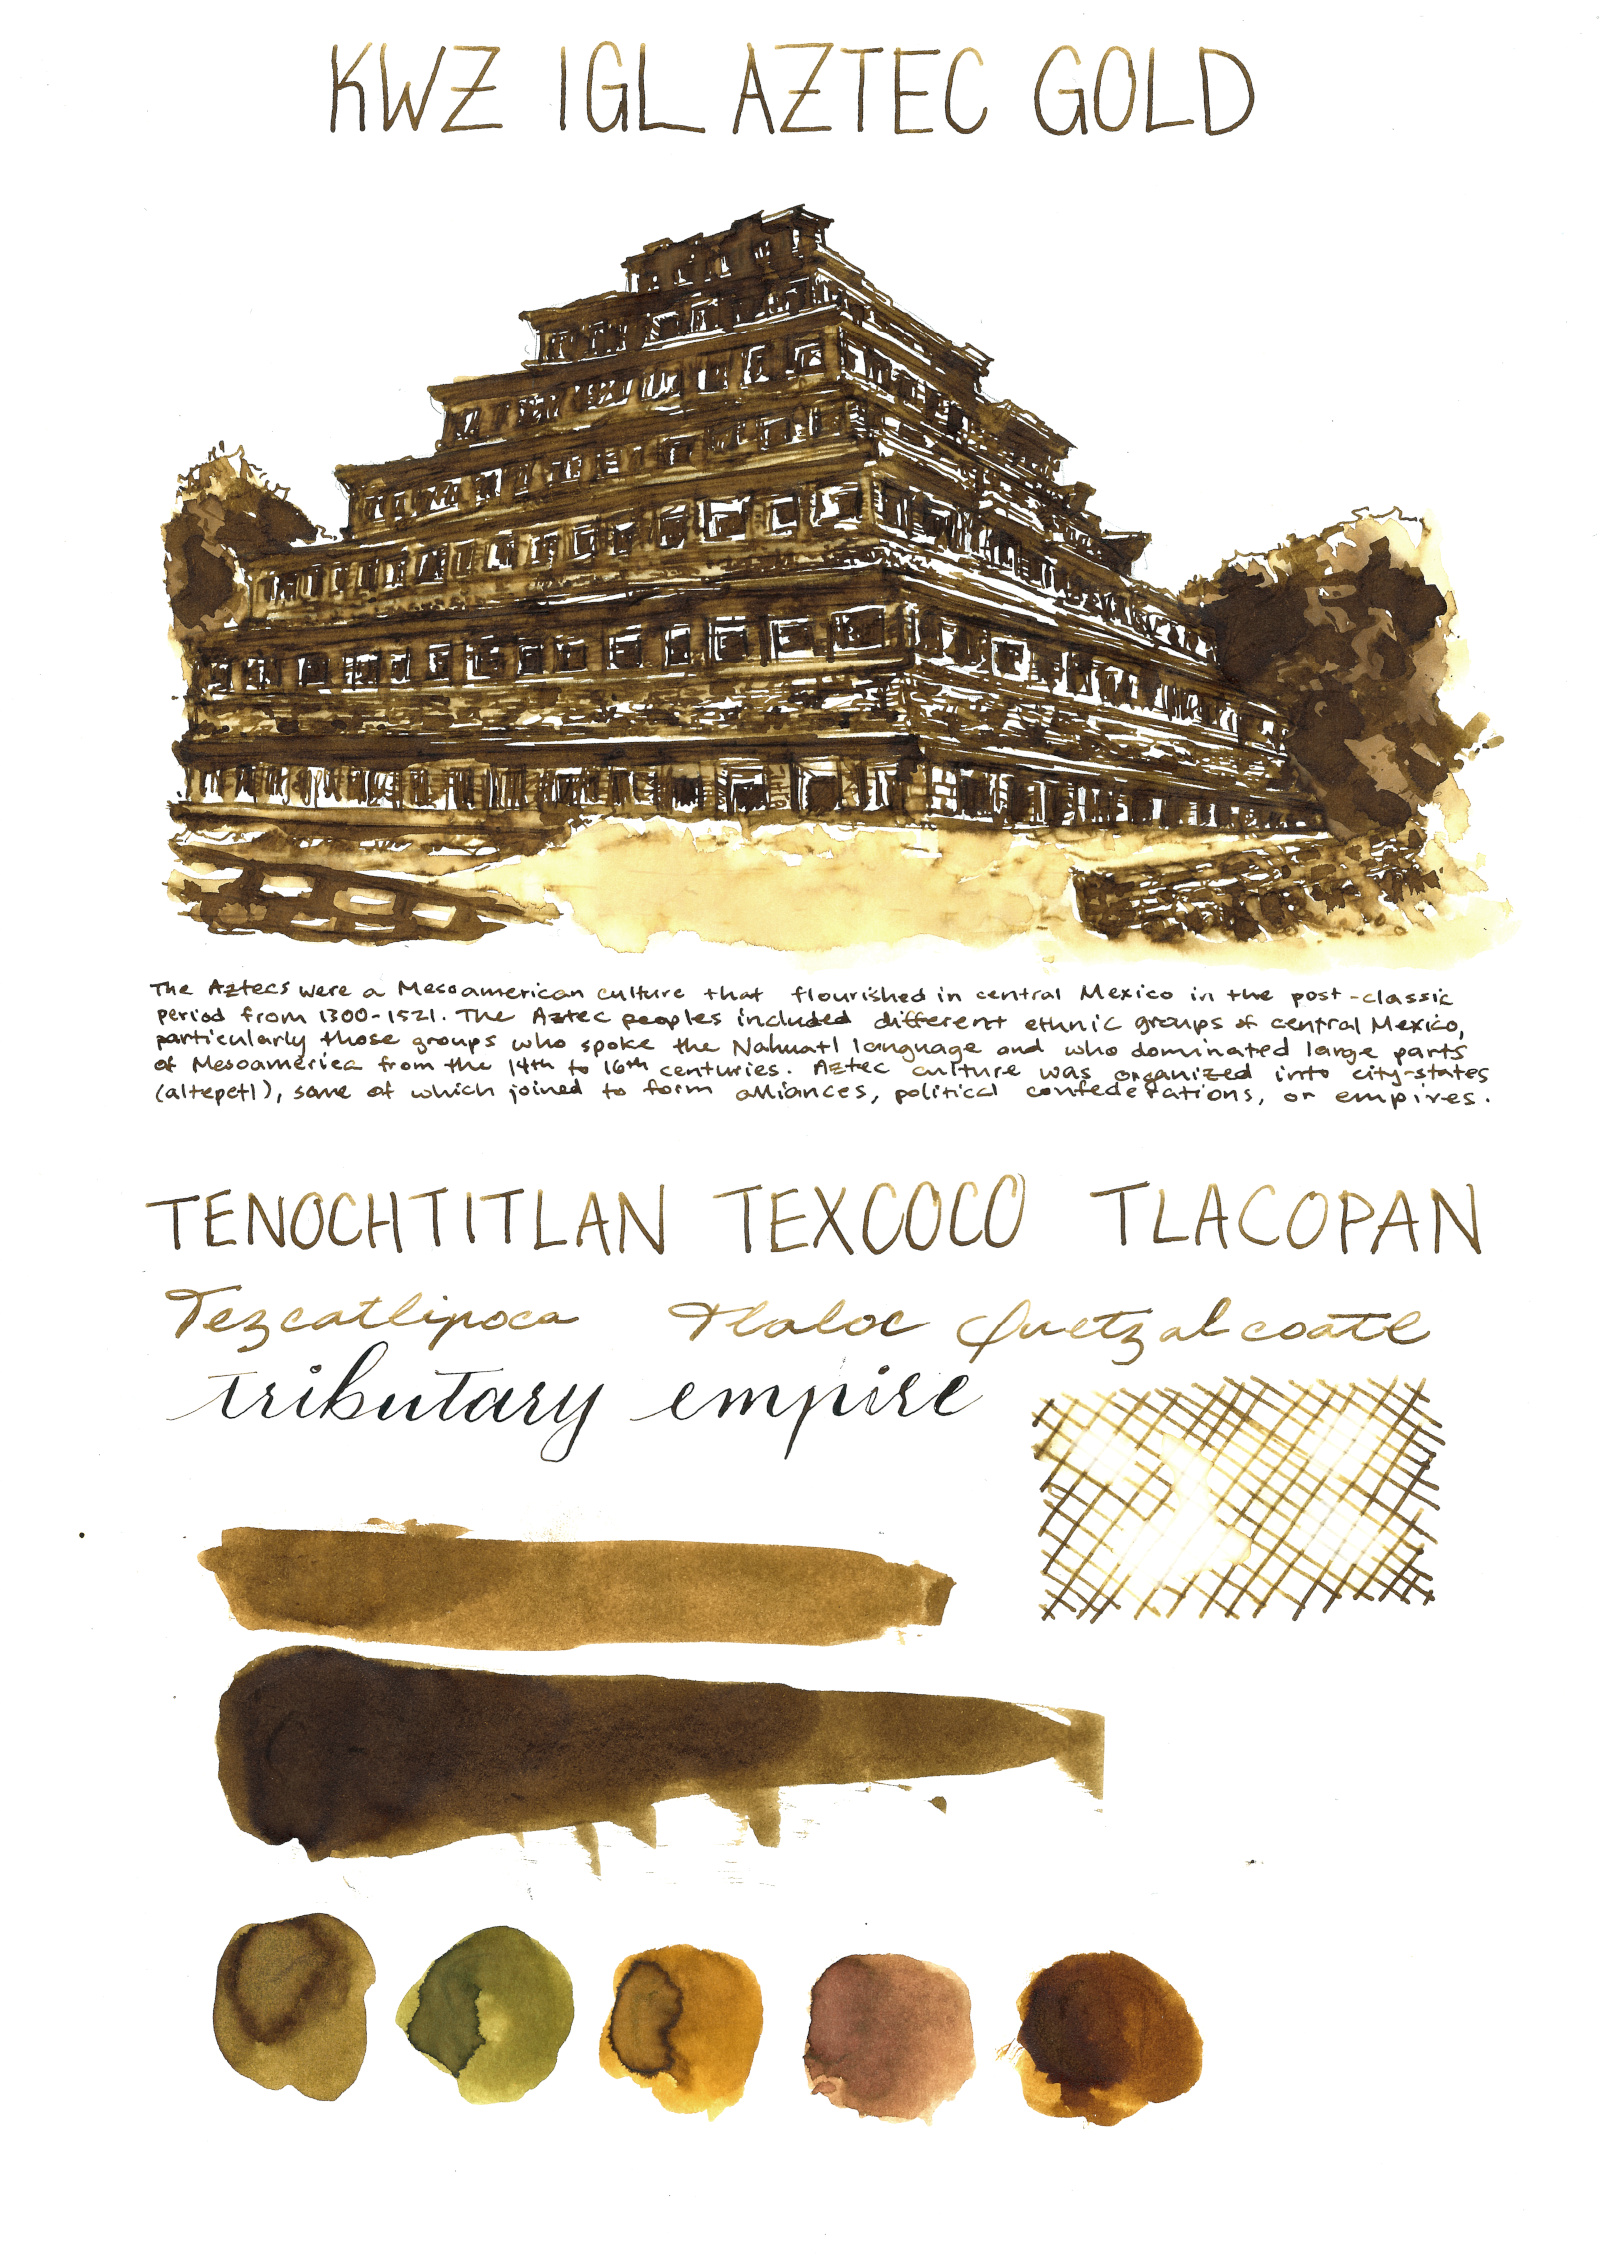 KWZ IGL AZTEC GOLD
The Aztecs were a Mesoamerican culture that flourished in central Mexico in the post-classic
period from 1300-1521. The Aztec peoples included different ethnic groups of central Mexico,
particularly those groups who spoke the Nahuatl language and who dominated large parts
of Mesoamerica from the 14th to 16th centuries. Aztec culture was organized into city-states
(altepetl), some of which joined to form alliances, political confederations, or empires.
TENOCHTITLAN TEXCOCO TLACOPAN
Tezcatlipoca Tlaloc Quetzalcoatl
tributary empire